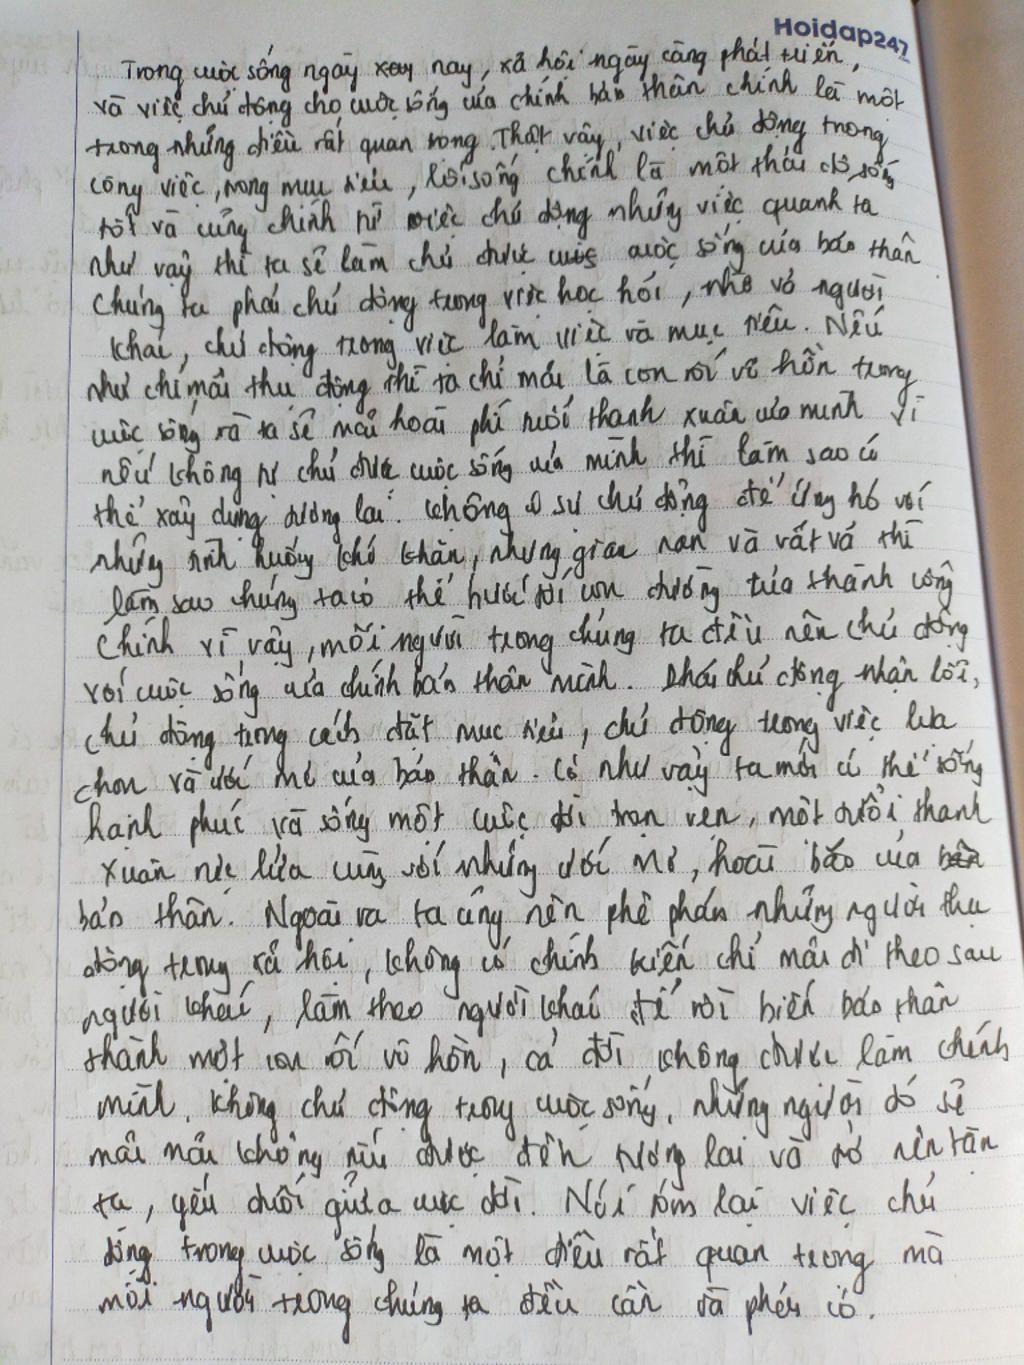 Hoidap247
Trong cuộc sống ngày xay nay, xã hội ngày càng phát triển,
và việc chủ động cho cuộc sống của chính bản thân chính là một
trong những điều rất quan trong. Thật vậy, việc chủ động trong
công việc, trong mục tiêu, lối sống chính là một thái độ sống
tốt và cũng chính từ việc chủ động những việc quanh ta
như vậy thì ta sẽ làm chủ được cuộc sống của bản thân
Chúng ta phải chủ động trong việc học hỏi, nhờ vả người
khác, chủ động trong việc làm việc và mục tiêu. Nếu
như chỉ mãi thụ động thì ta chỉ mãi là con rối vô hồn trong
cuộc sống và ta sẽ mãi hoài phí tuổi thanh xuân của mình vì
nếu không tự chủ được cuộc sống của mình thì làm sao có
thể xây dựng tương lai. Không có sự chủ động để ứng hó với
những tình huống khó khăn, nhưng gian nan và vất vả thì
làm sao chúng ta có thể bước tới con đường của thành công
Chính vì vậy, mỗi người trong chúng ta đều nên chủ động
với cuộc sống của chính bản thân mình. Phải chủ động nhận lỗi,
chủ động trong cách đặt mục tiêu, chủ động trong việc lựa
chọn và ước mơ của bản thân. Có như vậy ta mới có thể sống
hạnh phúc và sống một cuộc đời trọn vẹn, một tuổi thanh
xuân rực lửa cùng với những ước mơ, hoài bão của bản
bản thân. Ngoài ra ta cũng nên phê phán những người thụ
động trong xã hội, không có chính kiến chỉ mãi đi theo sau
người khác, làm theo người khác để rồi biến bản thân
thành một con rối vô hồn, cả đời không được làm chính
mình. Không chủ động trong cuộc sống, những người đó sẽ
mãi mãi không níu được đến tương lai và trở nên tàn
tạ, yếu đuối giữa cuộc đời. Nói tóm lại việc chủ
động trong cuộc sống là một điều rất quan trọng mà
mỗi người trong chúng ta đều cần và phải có.